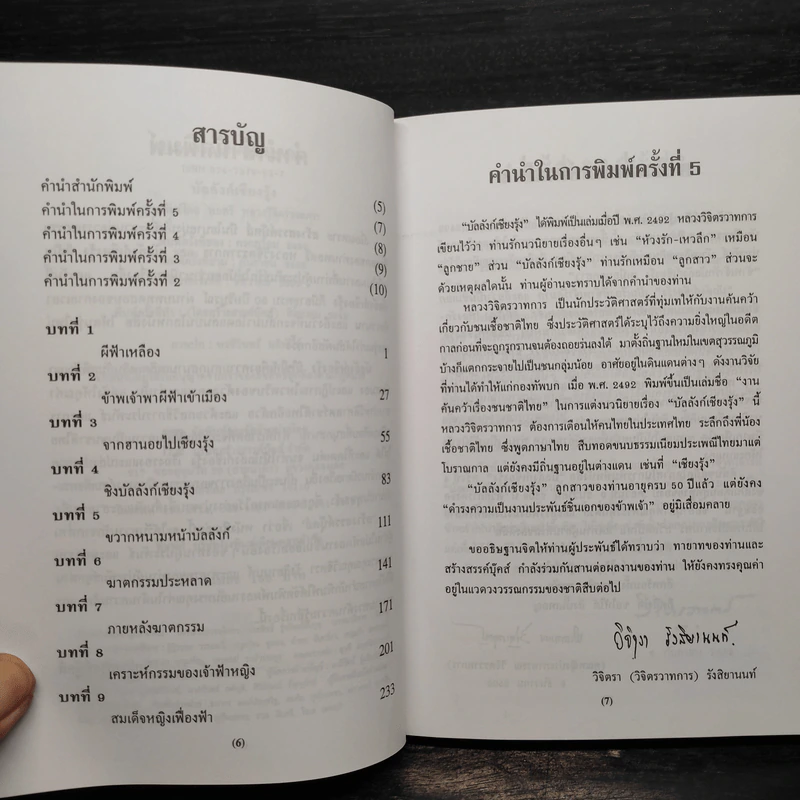 สารบัญ
คำนำสำนักพิมพ์ (5)
คำนำในการพิมพ์ครั้งที่ 5 (7)
คำนำในการพิมพ์ครั้งที่ 4 (8)
คำนำในการพิมพ์ครั้งที่ 3 (9)
คำนำในการพิมพ์ครั้งที่ 2 (10)
บทที่ 1
ผีฟ้าเหลือง 1
บทที่ 2
ข้าพเจ้าพาผีฟ้าเข้าเมือง 27
บทที่ 3
จากฮานอยไปเชียงรุ้ง 55
บทที่ 4
ชิงบัลลังก์เชียงรุ้ง 83
บทที่ 5
ขวากหนามหน้าบัลลังก์ 111
บทที่ 6
ฆาตกรรมประหลาด 141
บทที่ 7
ภายหลังฆาตกรรม 171
บทที่ 8
เคราะห์กรรมของเจ้าฟ้าหญิง 201
บทที่ 9
สมเด็จหญิงเฟื่องฟ้า 233
(6)
คำนำในการพิมพ์ครั้งที่ 5
“บัลลังก์เชียงรุ้ง” ได้พิมพ์เป็นเล่มเมื่อปี พ.ศ. 2492 หลวงวิจิตรวาทการ
เขียนไว้ว่า ท่านรักนวนิยายเรื่องอื่นๆ เช่น “ห้วงรัก-เหวลึก” เหมือน
“ลูกชาย” ส่วน “บัลลังก์เชียงรุ้ง” ท่านรักเหมือน “ลูกสาว” ส่วนจะ
ด้วยเหตุผลใดนั้น ท่านผู้อ่านจะทราบได้จากคำนำของท่าน
หลวงวิจิตรวาทการ เป็นนักประวัติศาสตร์ที่ทุ่มเทให้กับงานค้นคว้า
เกี่ยวกับชนเชื้อชาติไทย ซึ่งประวัติศาสตร์ได้ระบุไว้ถึงความยิ่งใหญ่ในอดีต
กาลก่อนที่จะถูกรุกรานจนต้องถอยร่นลงใต้ มาตั้งถิ่นฐานใหม่ในเขตสุวรรณภูมิ
บ้างก็แตกกระจายไปเป็นชนกลุ่มน้อย อาศัยอยู่ในดินแดนต่างๆ ดังงานวิจัย
ที่ท่านได้ทำให้แก่กองทัพบก เมื่อ พ.ศ. 2492 พิมพ์ขึ้นเป็นเล่มชื่อ “งาน
ค้นคว้าเรื่องชนชาติไทย” ในการแต่งนวนิยายเรื่อง “บัลลังก์เชียงรุ้ง” นี้
หลวงวิจิตรวาทการ ต้องการเตือนให้คนไทยในประเทศไทย ระลึกถึงพี่น้อง
เชื้อชาติไทย ซึ่งพูดภาษาไทย สืบทอดขนบธรรมเนียมประเพณีไทยมาแต่
โบราณกาล แต่ยังคงมีถิ่นฐานอยู่ในต่างแดน เช่นที่ “เชียงรุ้ง”
“บัลลังก์เชียงรุ้ง” ลูกสาวของท่านอายุครบ 50 ปีแล้ว แต่ยังคง
“ดำรงความเป็นงานประพันธ์ชิ้นเอกของข้าพเจ้า” อยู่มิเสื่อมคลาย
ขออธิษฐานจิตให้ท่านผู้ประพันธ์ได้ทราบว่า ทายาทของท่านและ
สร้างสรรค์บุ๊คส์ กำลังร่วมกันสานต่อผลงานของท่าน ให้ยังคงทรงคุณค่า
อยู่ในแวดวงวรรณกรรมของชาติสืบต่อไป
วิจิตรา รังสิยานนท์
วิจิตรา (วิจิตรวาทการ) รังสิยานนท์
(7)